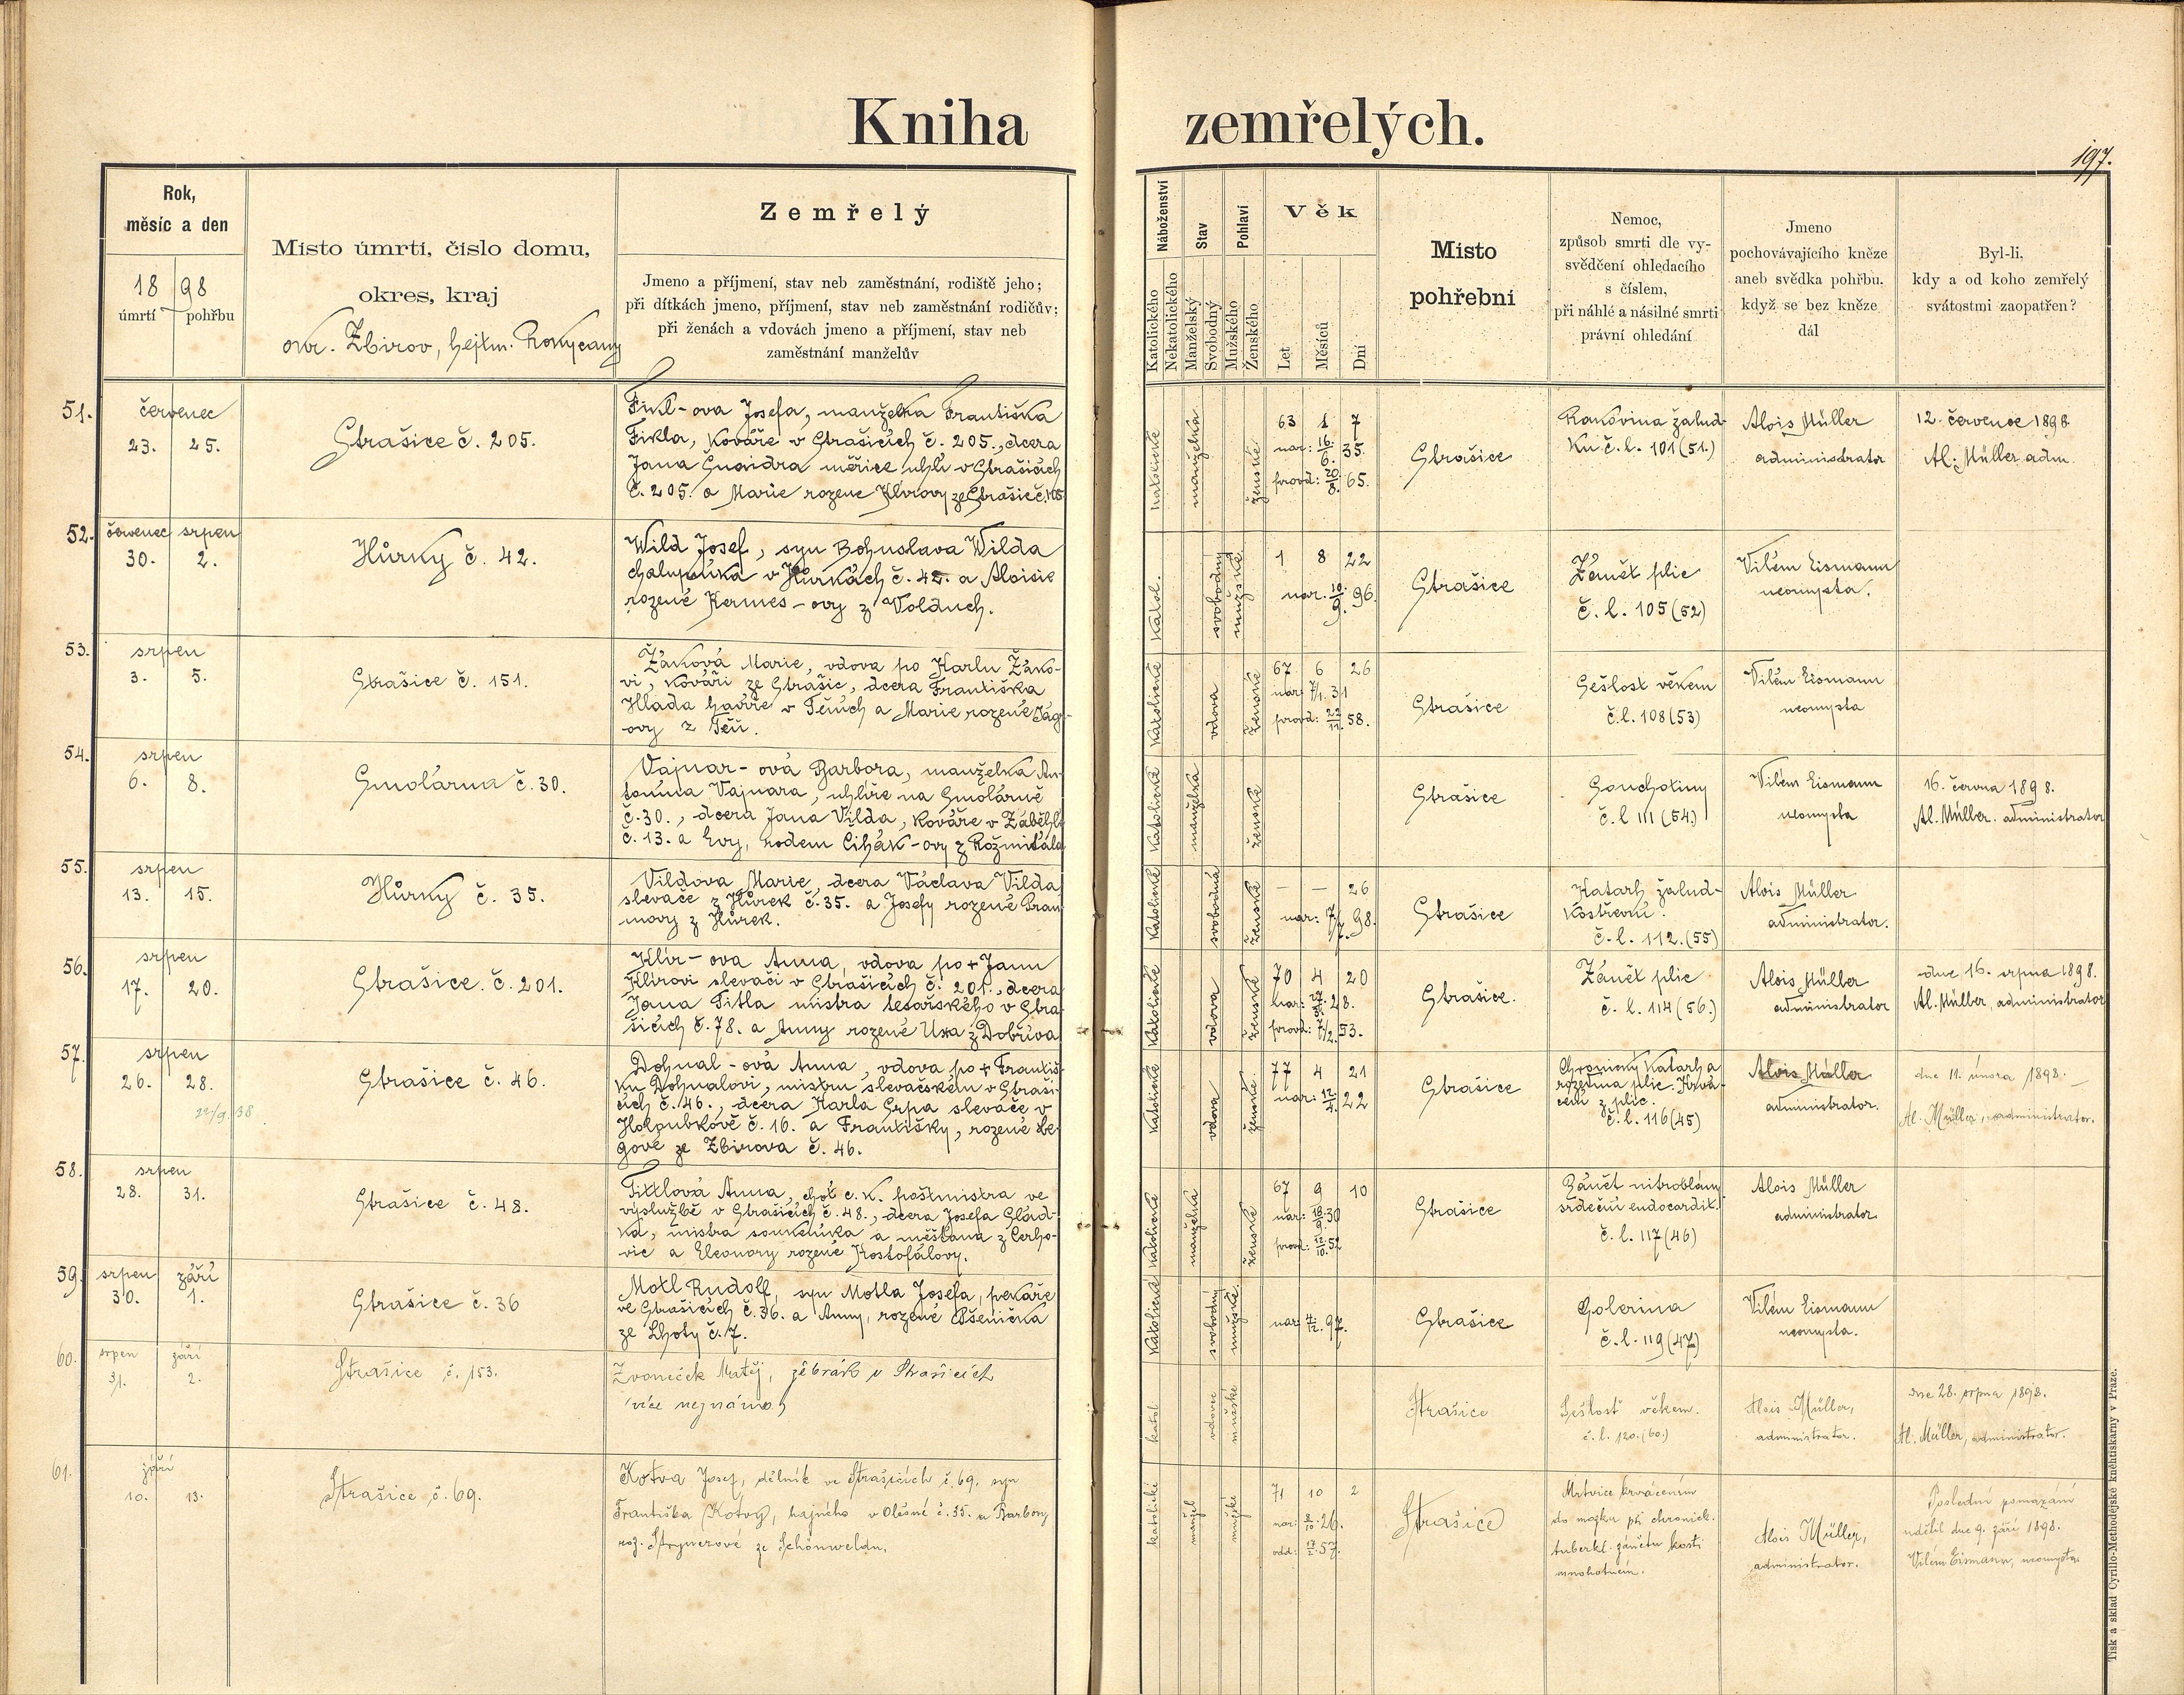 Kniha zemřelých.
197.
Rok,
měsíc a den
18 98
úmrtí pohřbu
Místo úmrtí, číslo domu,
okres, kraj
okr. Zbirov, hejtm. Rokycany
Zemřelý
Jmeno a příjmení, stav neb zaměstnání, rodiště jeho;
při dítkách jmeno, příjmení, stav neb zaměstnání rodičův;
při ženách a vdovách jmeno a příjmení, stav neb
zaměstnání manželův
Náboženství
Katolického
Nekatolického
Stav
Manželský
Svobodný
Pohlaví
Mužského
Ženského
Věk
Let
Měsíců
Dní
Místo
pohřební
Nemoc,
způsob smrti dle vy-
svědčení ohledacího
s číslem,
při náhlé a násilné smrti
právní ohledání
Jmeno
pochovávajícího kněze
aneb svědka pohřbu,
když se bez kněze
dál
Byl-li,
kdy a od koho zemřelý
svátostmi zaopatřen?
51.
červenec
23. 25.
Strašice č. 205.
Fikl-ova Josefa, manželka Františka
Fikla, kováře v Strašicích č. 205., dcera
Jana Šnaidra měřiče uhlí v Strašicích
č. 205. a Marie rozené Klírovy ze Strašic č. 105
katolické
manželka
ženské
63 1 7
nar: 16/6. 35.
provd: 20/8. 65.
Strašice
Rakovina žalud-
ku č. l. 101 (51.)
Alois Müller
administrator
12. července 1898.
Al. Müller adm.
52.
červenec srpen
30. 2.
Hůrky č. 42.
Wild Josef, syn Bohuslava Wilda
chalupníka v Hůrkách č. 42. a Aloisie
rozené Kermes-ovy z Volduch.
Katol.
svobodný
mužské
1 8 22
nar. 10/9. 96.
Strašice
Zánět plic
č. l. 105 (52)
Vilém Eismann
neomysta.
53.
srpen
3. 5.
Strašice č. 151.
Žáková Marie, vdova po Karlu Žáko-
vi, kováři ze Strašic, dcera Františka
Hlada havíře v Těních a Marie rozené Jág-
ovy z Těň.
Katolické
vdova
ženské
67 6 26
nar: 7/1. 31
provd: 22/11. 58.
Strašice
Sešlost věkem
č. l. 108 (53)
Vilém Eismann
neomysta
54.
srpen
6. 8.
Smolárna č. 30.
Vajnar-ová Barbora, manželka An-
tonína Vajnara, uhlíře na Smolárně
č. 30., dcera Jana Vilda, kováře v Záběhli
č. 13. a Evy, rodem Cihák-ovy z Rožmitála
Katolické
manželka
ženské
Strašice
Souchotiny
č. l. 111 (54.)
Vilém Eismann
neomysta
16. června 1898.
Al. Müller. administrator
55.
srpen
13. 15.
Hůrky č. 35.
Vildova Marie, dcera Václava Vilda
slevače z Hůrek č. 35. a Josefy rozené Bran-
movy z Hůrek.
Katolické
svobodná
ženské
— — 26
nar: 7/7. 98.
Strašice
Katarh žalud-
kostřevní.
č. l. 112. (55)
Alois Müller
administrator.
56.
srpen
17. 20.
Strašice. č. 201.
Klír-ova Anna, vdova po + Janu
Klírovi slevači v Strašicích č. 201., dcera
Jana Titla mistra tesařského v Stra-
šicích č. 78. a Anny rozené Uxa z Dobřiva
Katolické
vdova
ženské
70 4 20
provd: 7/2. 53.
Strašice.
Zánět plic
č. l. 114 (56.)
Alois Müller
administrator
dne 16. srpna 1898.
Al. Müller, administrator
57.
srpen
26. 28.
22/9. 38
Strašice č. 46.
Dohnal-ová Anna, vdova po + Františ-
ku Dohnalovi, mistru slevačském v Straši-
cích č. 46., dcera Karla Srpa slevače v
Holoubkově č. 16. a Františky, rozené Le-
gové ze Zbirova č. 46.
Katolické
vdova
ženské
77 4 21
nar: 12/4. 22
Strašice
Chronický katarh a
rozedma plic. Krvá-
cení z plic.
č. l. 116 (45)
Alois Müller
administrator.
dne 11. února 1898.
Al. Müller, administrator.
58.
srpen
28. 31.
Strašice č. 48.
Tittlová Anna, choť c. k. poštmistra ve
výslužbě v Strašicích č. 48., dcera Josefa Slád-
ka, mistra soukeníka a měšťana z Cerho-
vic a Eleonory rozené Kostofálovy.
katolické
manželka
ženské
67 9 10
nar: 18/9. 30
provd: 12/10. 52
Strašice
Zánět nitroblány
srdeční endocardit.
č. l. 117 (46)
Alois Müller
administrator
59.
srpen září
30. 1.
Strašice č. 36
Motl Rudolf, syn Motla Josefa, pekaře
ve Strašicích č. 36. a Anny, rozené Pšenička
ze Lhoty č. 7.
Katolické
svobodný
mužské
nar: 4/12. 97.
Strašice
Golerina
č. l. 119 (47)
Vilém Eismann
neomysta.
60.
srpen září
31. 2.
Strašice č. 153.
Zvoneček Matěj, žebrák v Strašicích
(více neznámo)
katol
vdovec
mužské
Strašice
Sešlosť věkem.
č. l. 120. (60.)
Alois Müller,
administrator.
dne 28. srpna 1898.
Al. Müller, administrator.
61.
září
10. 13.
Strašice č. 69.
Kotva Josef, dělník ve Strašicích č. 69. syn
Františka Kotvy, hajného v Olešné č. 35. a Barbory
roz. ze Schönweldu.
katolické
manžel
mužské
71 10 2
nar: 8/10. 26.
odd: 17/2. 57.
Strašice
Mrtvice krvácením
do mozku při chronick.
tuberkl. zánětu kostí
mnohotném.
Alois Müller,
administrator.
Poslední pomazání
udělil dne 9. září 1898.
Vilém Eismann, neomysta.
Tisk a sklad Cyrillo-Methodějské knihtiskárny v Praze.